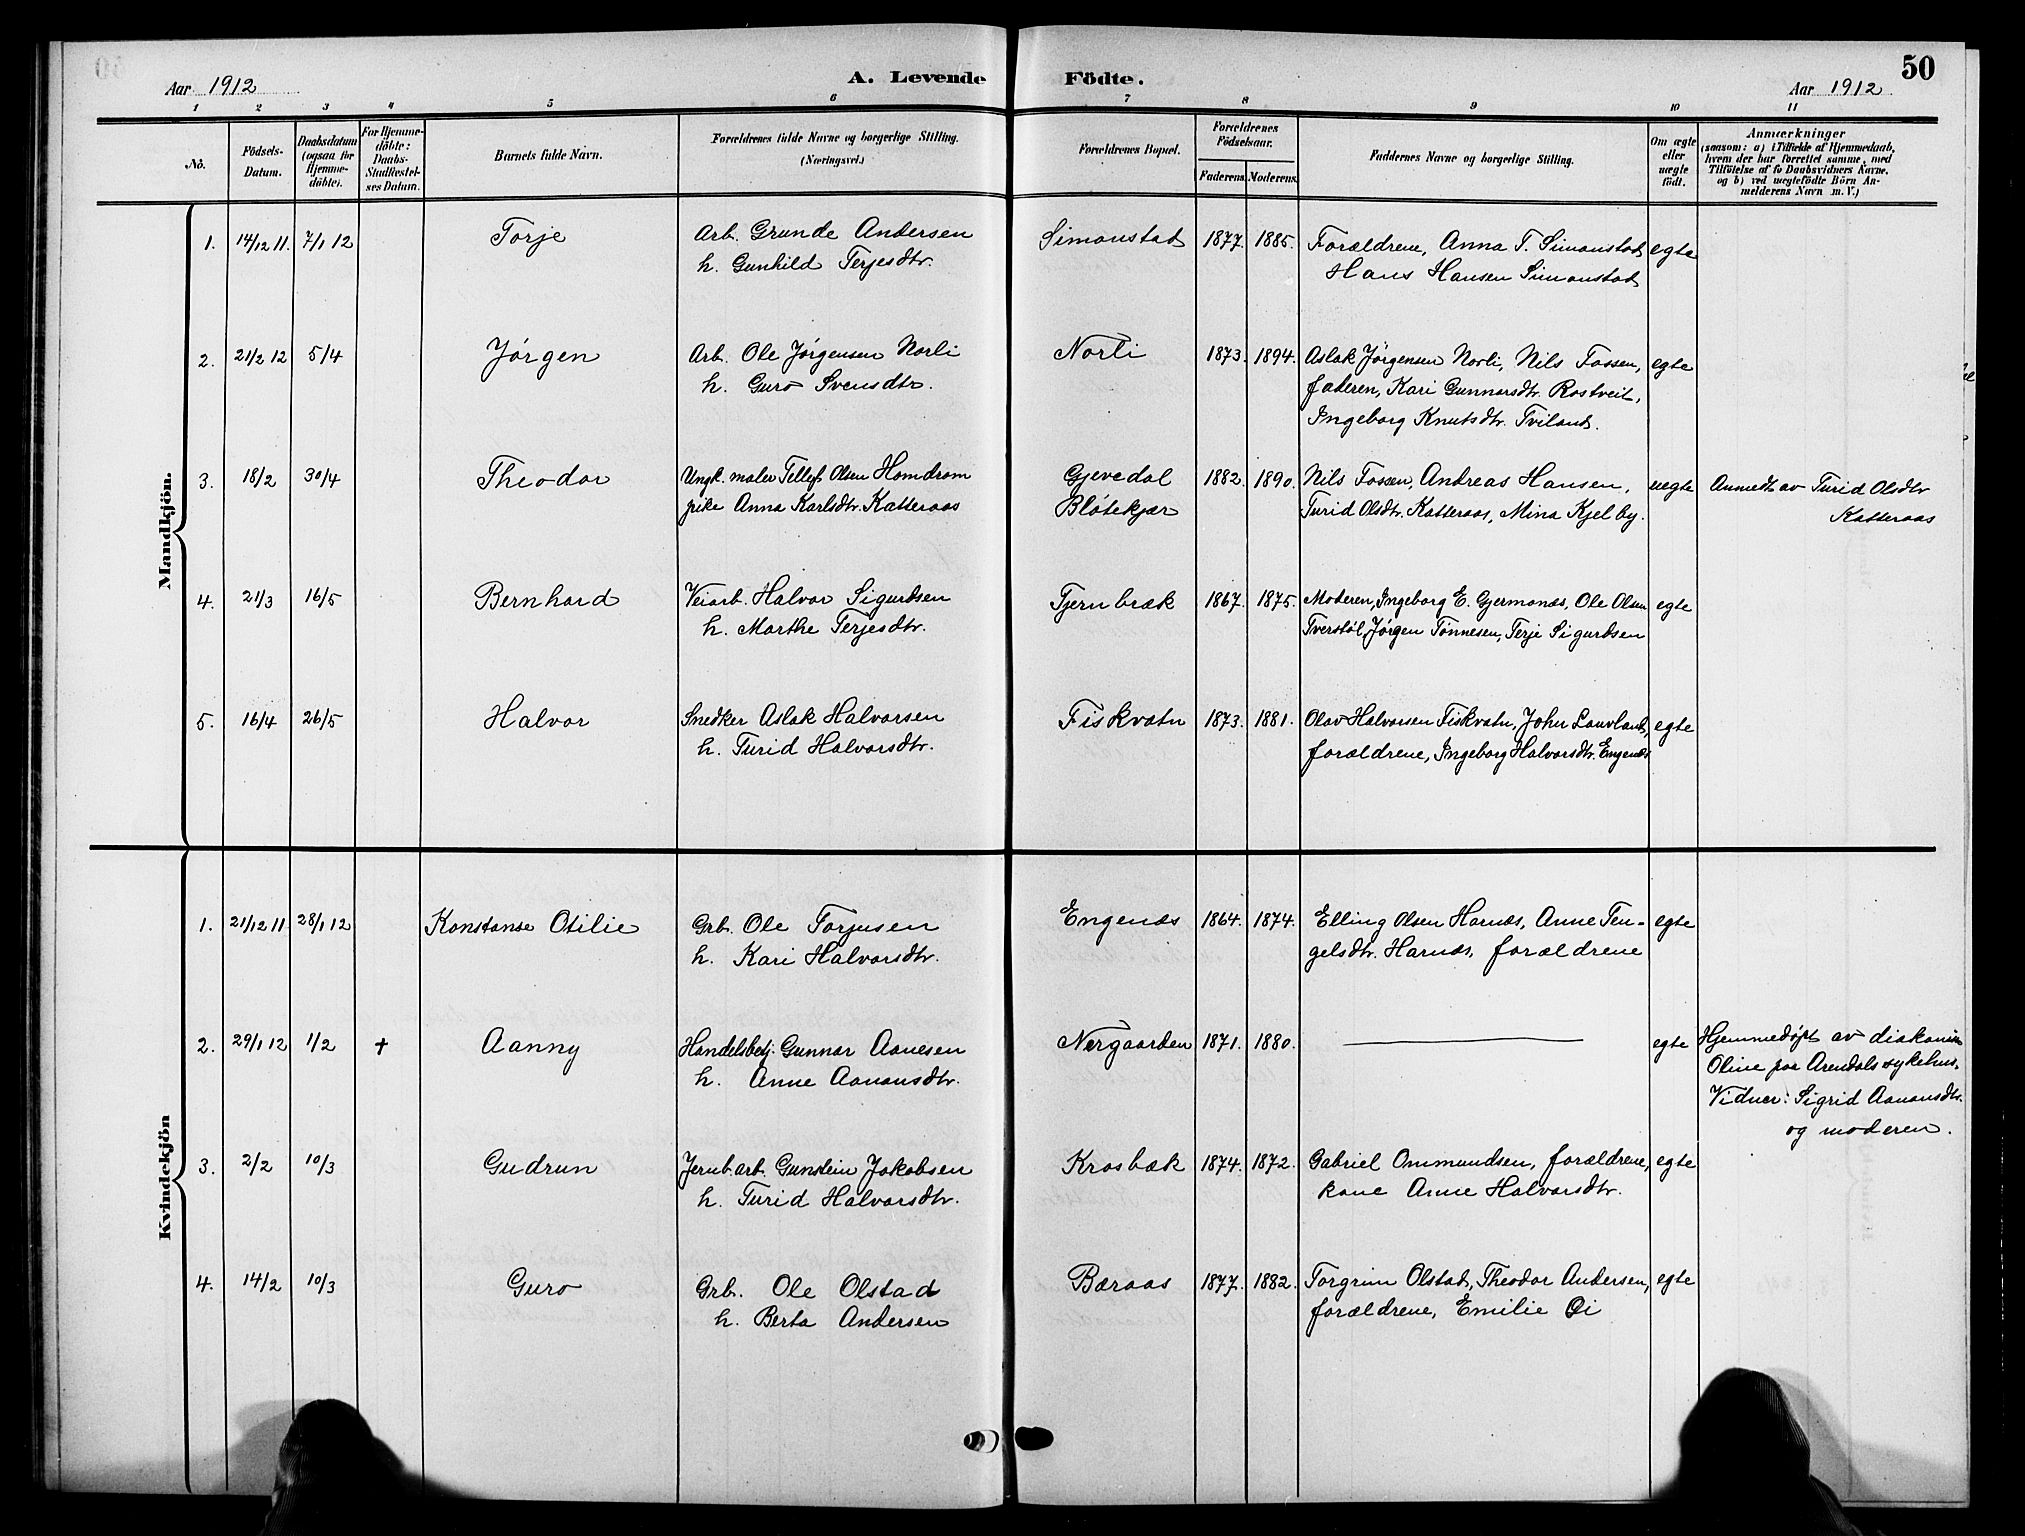 50
Aar 1912
A. Levende Födte.
Aar 1912
1 2 3 4 5 6 7 8 9 10 11
No.
Födsels-Datum.
Daabsdatum (ogsaa for Hjemmedöbte).
For Hjemmedöbte: Daabs-Stadfestelses Datum.
Barnets fulde Navn.
Forældrenes fulde Navne og borgerlige Stilling.
(Næringsvei.)
Forældrenes Bopæl.
Forældrenes Födselsaar.
Faderens. Moderens.
Faddernes Navne og borgerlige Stilling.
Om ægte eller uægte födt.
Anmærkninger
(saasom: a) i Tilfælde af Hjemmedaab, hvem der har forrettet samme, med Tilföielse af to Daabsvidners Navne, og b) ved uægtefödte Börn Anmelderens Navn m. V.)
Mandkjön.
1. 14/12 11. 7/1 12 Torje Arb. Grunde Andersen Simonstad 1877. 1885. Forældrene, Anna T. Simonstad egte
h. Gunhild Terjesdtr. Hans Hansen Simonstad
2. 21/2 12 5/4 Jørgen Arb. Ole Jørgensen Norli Norli 1873. 1894. Aslak Jørgensen Norli, Nils Fossen, egte
h. Guro Svensdtr. faderen, Kari Gunnarsdtr. Rostveit,
Ingeborg Knutsdtr. Tviland.
3. 18/2 30/4 Theodor Ungk. maler Tellef Olsen Homdrom Gjevedal 1882. 1890. Nils Fossen, Andreas Hansen, uegte Anmedt av Turid Olsdtr
pike Anna Karlsdtr. Katteraas Bløtekjær Turid Olsdtr. Katteraas, Mina Kjelby. Katteraas
4. 21/3 16/5 Bernhard Veiarb. Halvor Sigurdsen Tjernbræk 1867. 1875. Moderen, Ingeborg E. Gjermonæs, Ole Olsen egte
h. Marthe Terjesdtr. Tverstøl, Jørgen Tønnesen, Terje Sigurdsen
5. 16/4 26/5 Halvor Snedker Aslak Halvorsen Fiskvatn 1873. 1881. Olav Halvorsen Fiskvatn, John Lauvland, egte
h. Turid Halvorsdtr. forældrene, Ingeborg Halvorsdtr. Engenæs
Kvindekjön
1. 21/12 11 28/1 12 Konstanse Otilie Grb. Ole Torjusen Engenæs 1864. 1874. Elling Olsen Harnæs, Anne Ten- egte
h. Kari Halvorsdtr. gelsdtr. Harnæs, forældrene
2. 29/1 12 1/2 + Aanny Handelsbetj. Gunnar Aanesen Nergaarden 1871. 1880. — egte Hjemmedøpt av diakonisse
h. Anne Aanonsdtr. Oline paa Arendals sykehus.
Vidner: Sigrid Aanonsdtr.
og moderen.
3. 2/2 10/3 Gudrun Jernb.arb. Gunstein Jakobsen Krosbæk 1874. 1872. Gabriel Ommundsen, forældrene, egte
h. Turid Halvorsdtr. kone Anne Halvorsdtr.
4. 14/2 10/3 Guro Grb. Ole Olstad Bæraas 1877. 1882. Torgrim Olstad, Theodor Andersen, egte
h. Berta Andersen forældrene, Emilie Øi